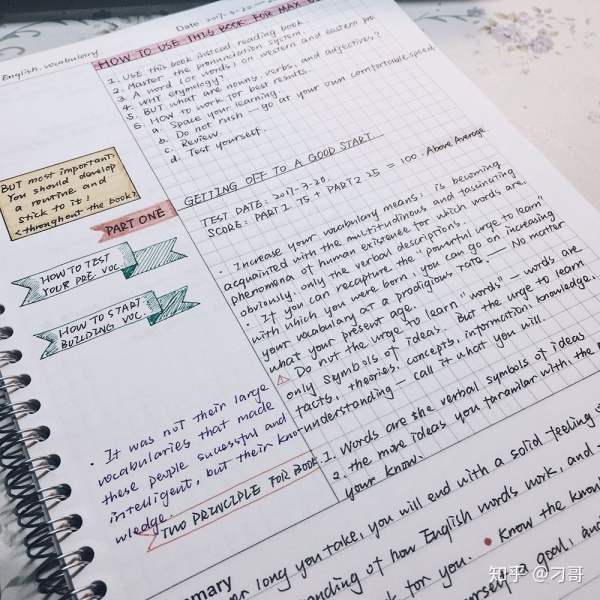 Date 2017-3-20
English. Vocabulary.
HOW TO USE THIS BOOK FOR MAX
1. USE this book instead reading book.
2. Master the pronunciation system.
3. A word (or words) on western and eastern
4. WHY etymology?
5. BUT what are nouns, verbs, and adjectives?
6. HOW to work for best results.
a. Space your learning.
b. Do not rush — go at your own comfortable speed.
c. Review.
d. Test yourself.
BUT most important.
You should develop
a routine and
stick to it!
<throughout the book>
PART ONE
HOW TO TEST
YOUR PRE. VOC.
HOW TO START
BUILDING VOC.
GETTING OFF TO A GOOD START
TEST DATE: 2017-3-20.
SCORE: PART1 75 + PART2 25 = 100. Above Average.
• Increase your vocabulary means: is becoming
acquainted with the multitudinous and fascinating
phenomena of human existence for which words are.
obviously. only the verbal descriptions.
• If you can recapture the "powerful urge to learn"
with which you were born, you can go on increasing
your vocabulary at a prodigious rate. — No matter
what your present age.
Do not the urge to learn "words" — words are
only symbols of ideas. But the urge to learn
facts, theories, concepts, information, knowledge,
understanding — call it what you will.
• It was not their large
vocabularies that made
these people successful and
intelligent, but their kno-
wledge.
TWO PRINCIPLE FOR BOOK
1. Words are the verbal symbols of ideas
2. the more ideas you familar with, the
your know.
long you take, you will end with a solid feeling
of how English words work, and
for you. • Know the
a goal, and
知乎 @刁哥